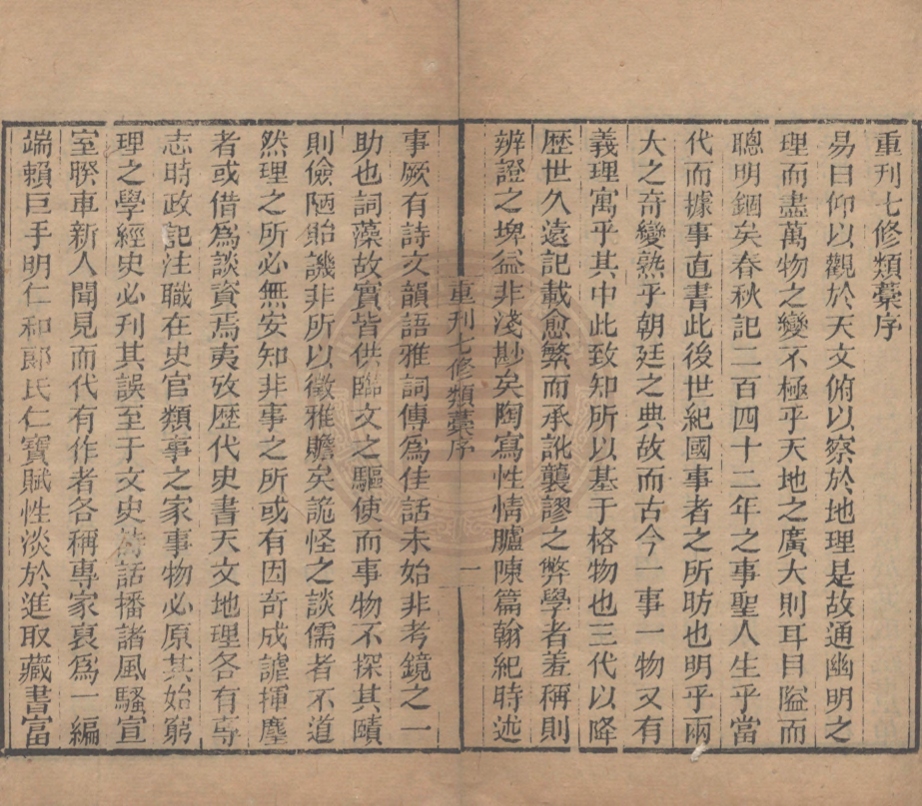 重刊七修類藁序
易曰仰以觀於天文俯以察於地理是故通幽明之
理而盡萬物之變不極乎天地之廣大則耳目隘而
聰明錮矣春秋記二百四十二年之事聖人生乎當
代而據事直書此後世紀國事者之所昉也明乎兩
大之奇變熟乎朝廷之典故而古今一事一物又有
義理寓乎其中此致知所以基于格物也三代以降
歷世久遠記載愈繁而承訛襲謬之弊學者羞稱則
辨證之埤益非淺尠矣陶寫性情臚陳篇翰紀時述
重刊七修類藁序 一
事厥有詩文韻語雅詞傳爲佳話未始非考鏡之一
助也詞藻故實皆供臨文之驅使而事物不探其賾
則儉陋貽譏非所以徵雅贍矣詭怪之談儒者不道
然理之所必無安知非事之所或有因奇成謔揮麈
者或借爲談資焉夷攷歷代史書天文地理各有專
志時政記注職在史官類事之家事物必原其始窮
理之學經史必刊其誤至于文史詩話播諸風騷宣
室睽車新人聞見而代有作者各稱專家裒爲一編
端賴巨手明仁和郎氏仁寶賦性淡於進取藏書富